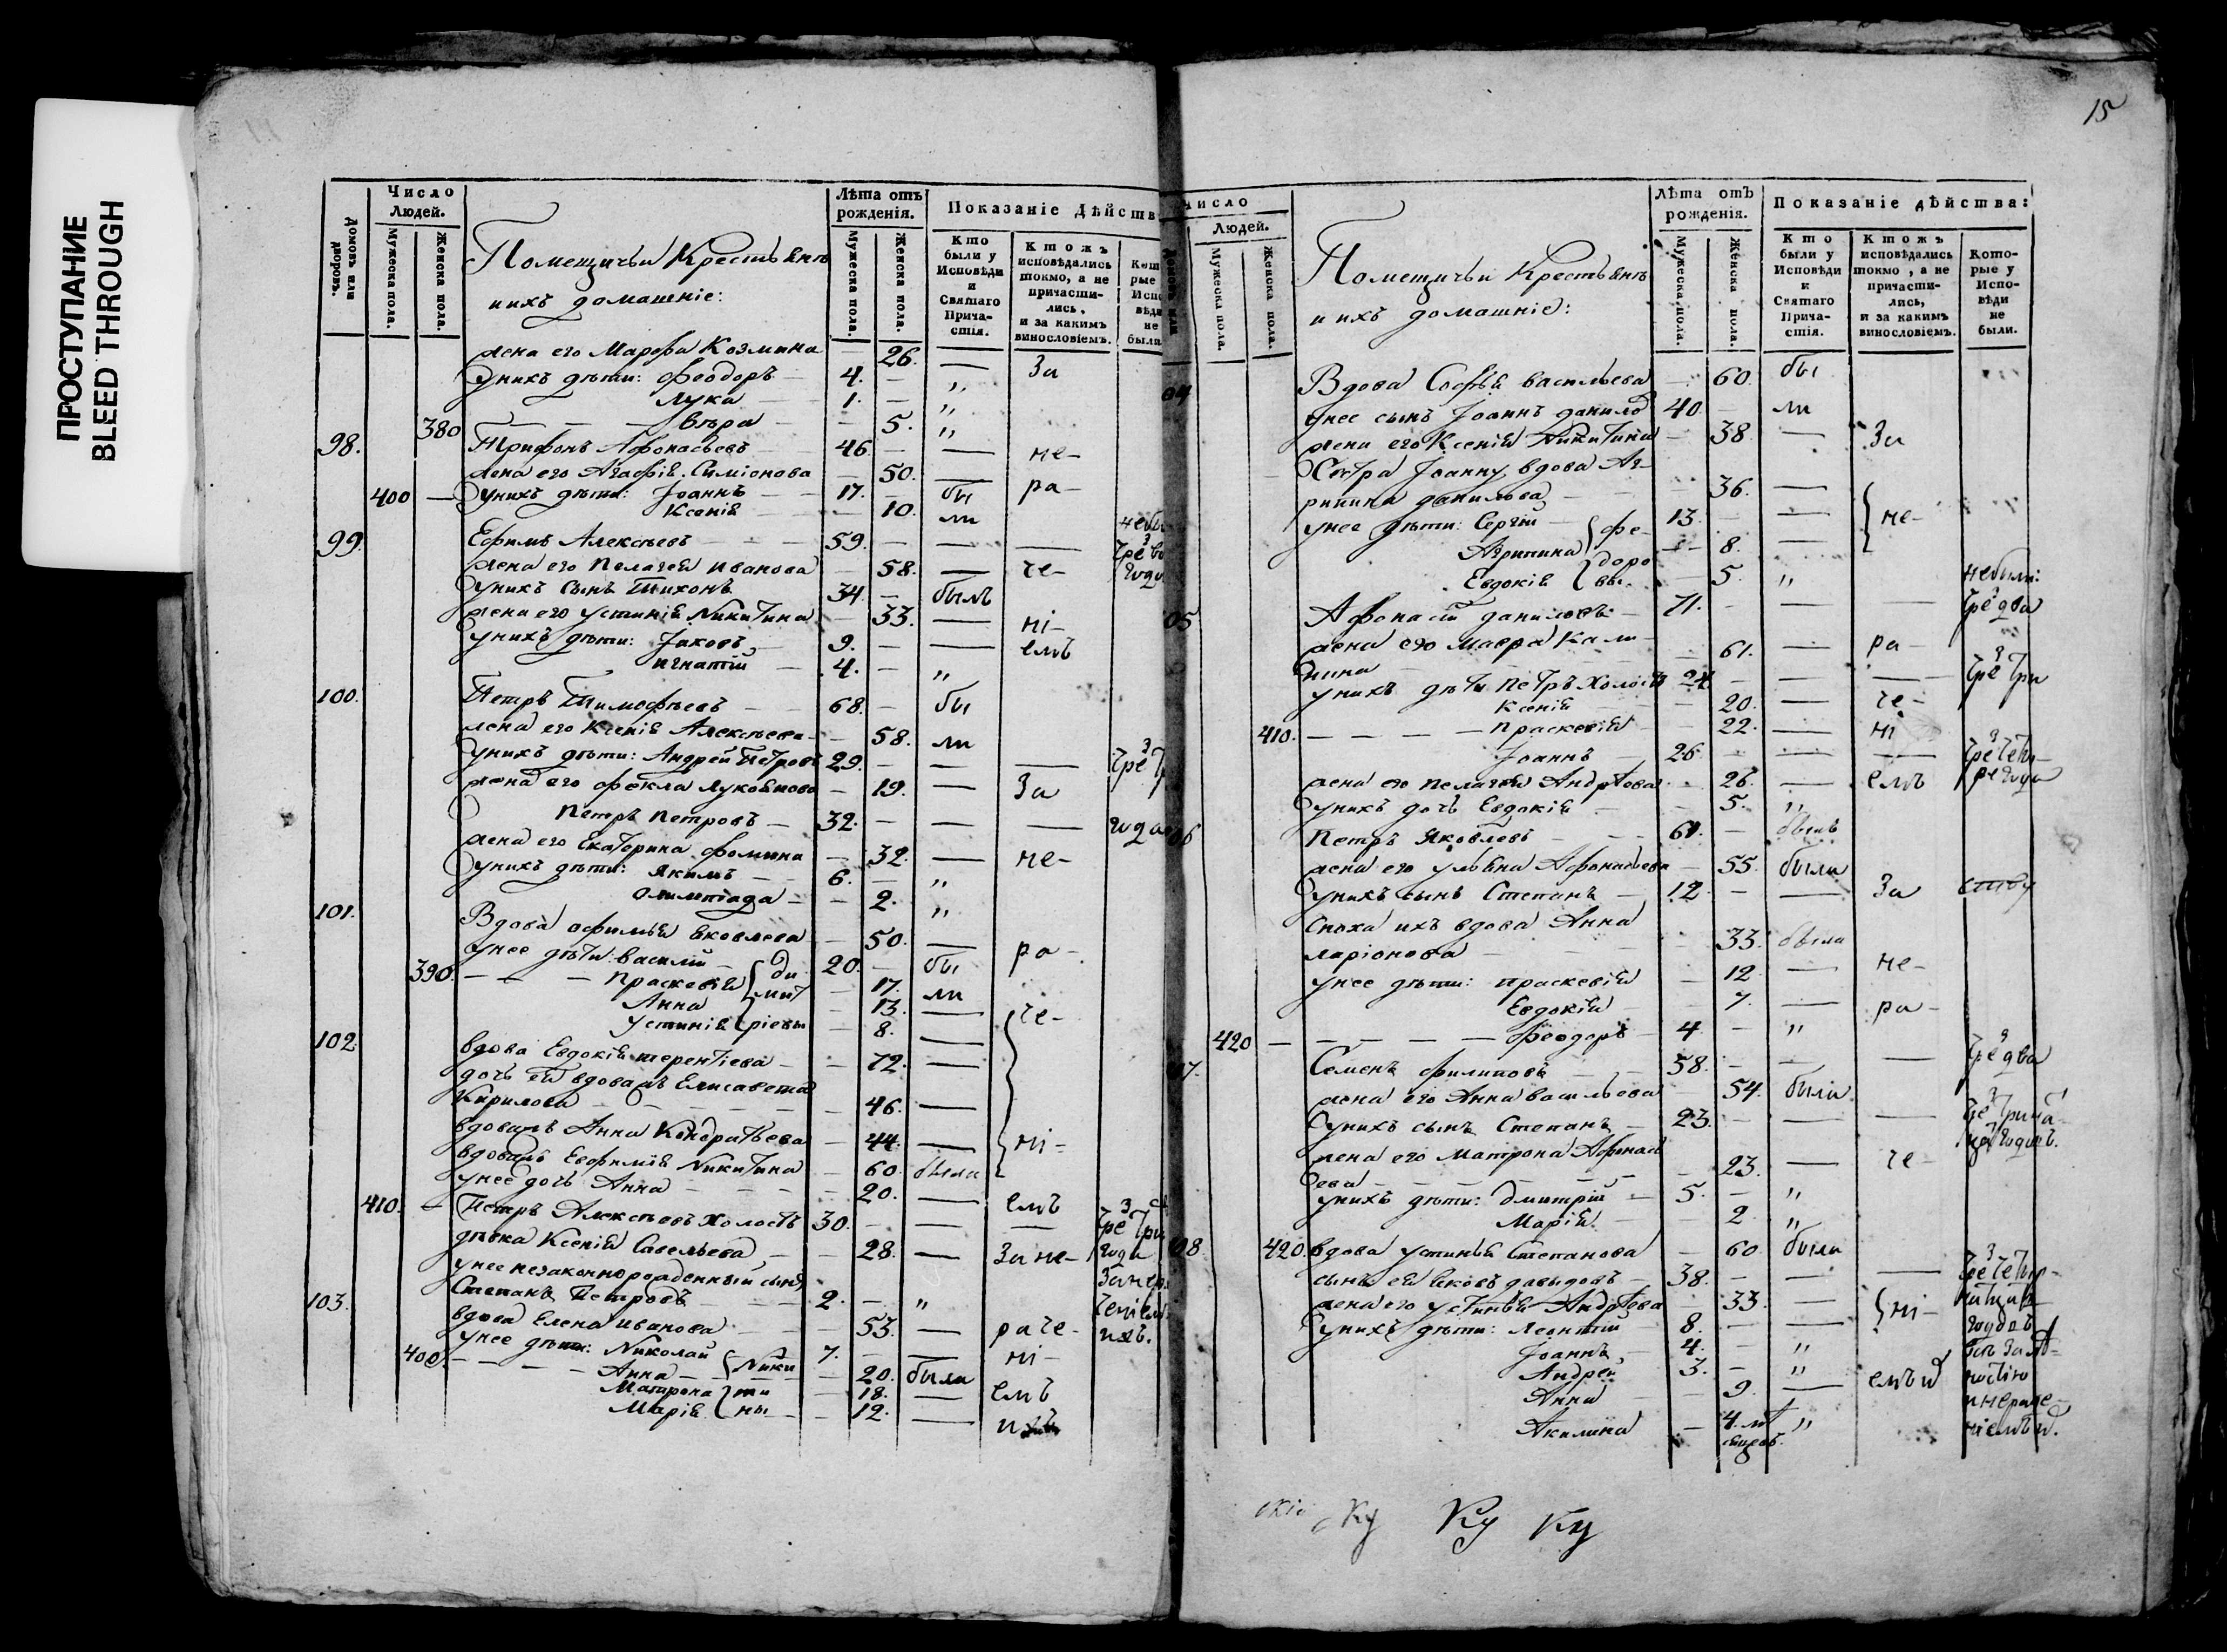 ПРОСТУПАНИЕ
BLEED THROUGH
15
Домовъ или дворовъ.
Число Людей.
Мужеска пола.
Женска пола.
Помещичьи Крестьяне
и ихъ домашніе:
Лѣта отъ рожденія.
Мужеска пола.
Женска пола.
Показаніе Дѣйств
Кто были у Исповѣди и Святаго Причастія.
Ктожъ исповѣдались токмо, а не причастились, и за какимъ винословіемъ.
жена его Марфа Козмина — 26. — За
у нихъ дѣти: Феодоръ 4. — „
Лука — 1. — „
380 — — — Вѣра — 5. „
98. Трифонъ Афонасьевъ 46. — — не-
жена его Агафія Симіонова — 50. — ра-
400 — у нихъ дѣти: Іоаннъ — 17. — бы
Ксенія — 10. ли
99. Ефимъ Алексѣевъ — 59. — — —
жена его Пелагея Иванова — 58. — че-
у нихъ сынъ Тихонъ 34. — былъ
жена его Устинія Никитина — 33. — ні-
у нихъ дѣти: Іаковъ — 9. — — емъ
Игнатій — 4. — „
100. Петръ Тимофѣевъ — 68. — бы
жена его Ксенія Алексѣева — 58. ли
у нихъ дѣти: Андрей Петровъ 29. — — —
жена его Фекла Лукоянова — 19. — За
Петръ Петровъ — 32. — — —
жена его Екатерина Фомина — 32. — не-
у нихъ дѣти: Якимъ — 6. — „
Олимпіада — 2. „
101. Вдова Афимья Яковлева — 50. — ра-
у нее дѣти: Василій — 20. — бы
390. — — Праскевія — 17. ли
Анна — 13. — че-
Устинія — 8. —
Ди
мит
ріевы
102. Вдова Евдокія Терентіева — 72. —
дочь ея вдова жъ Елисавета
Кирилова — 46. —
вдова жъ Анна Кондратьева — 44. — ні-
вдова жъ Евфимія Никитина — 60. была
у нее дочь Анна — 20. — емъ
410. — Петръ Алексѣевъ холостъ 30. — — —
дѣвка Ксенія Савельева — 28. — За не-
у нее незаконнорожденный сынъ
Степанъ Петровъ — 2. — „
103. вдова Елена Иванова — 53. — раче-
у нее дѣти: Николай 7. — — ні-
400. — — Анна — 20. была
Матрона — 18. — емъ
Марія — 12. —
Ники
ти
ны
Число Людей.
Мужеска пола.
Женска пола.
Помещичьи Крестьяне
и ихъ домашніе:
Лѣта отъ рожденія.
Мужеска пола.
Женска пола.
Показаніе дѣйства:
Кто были у Исповѣди и Святаго Причастія.
Ктожъ исповѣдались токмо, а не причастились, и за какимъ винословіемъ.
Которые у Исповѣди не были.
04 Вдова Софья Васильева — 60. бы
у нее сынъ Іоаннъ Данилов 40. — ли
жена его Ксенія Никитина — 38. — За
Сестра Іоанну, вдова Аг-
рипина Данилова — 36. —
у нее дѣти: Сергій — 13. — — не-
Агрипина — 8. —
Евдокія — 5. „
фе-
доро
вы.
05 Афонасій Даниловъ — 71. — — — не были: чрез два
жена его Мавра Кали-
нина — 61. — ра-
у нихъ дѣти Петръ холостъ 24. — — — чрез три
Ксенія — 20. — че-
410. — — — Праскевія — 22. — ні
Іоаннъ — 26. — — — чрез четы-
жена его Пелагея Андрѣева — 26. — емъ ре года
у нихъ дочь Евдокія — 5. „
06 Петръ Яковлевъ — 61. — былъ
жена его Ульяна Афонасьева — 55. была
у нихъ сынъ Степанъ — 12. — — За
Сноха ихъ вдова Анна
Ларіонова — 33. была
у нее дѣти: Праскевія — 12 — не-
Евдокія — 7. — ра-
420 — — — Феодоръ — 4. — „
07. Семенъ Филиповъ — 58. — — — чрез два
жена его Анна Васильева — 54. была
у нихъ сынъ Степанъ — 23. — — —
жена его Матрона Афонась
ева — 23. — че-
у нихъ дѣти: Дмитрій — 5. — „
Марія — 2. „
08. 420. Вдова Устинья Степанова — 60. была
сынъ ея Яковъ Давыдовъ — 38. — — —
жена его Устинья Андрѣева — 33. — ні-
у нихъ дѣти: Леонтій — 8. — —
Іоаннъ — 4. — „
Андрей — 3. — „
Анна — 9. — емъ
Акилина — 4. „
Ку Ку Ку